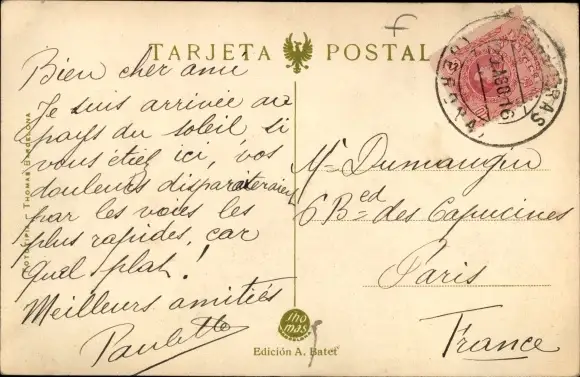 TARJETA POSTAL
Bien cher ami
Je suis arrivée au
pays du soleil si
vous étiez ici, vos
douleurs disparaiteraient
par les voies les
plus rapides, car
Quel plat!
Meilleurs amitiés
Paulette
Mr Dumangin
6 Bed des Capucines
Paris
France
FOTOTIPIA THOMAS BARCELONA
Thomas
Edición A. Batet